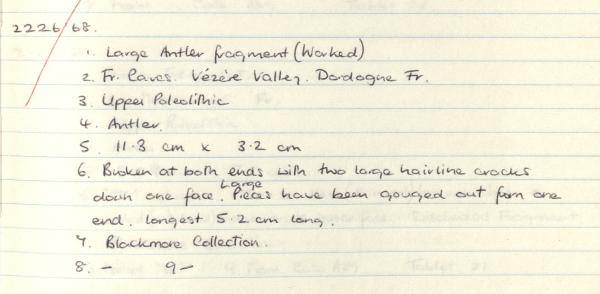 2226/68.
1. Large Antler fragment (Worked)
2. Fr. Caves. Vézère Valley. Dordogne Fr.
3. Upper Paleolithic
4. Antler.
5. 11.3 cm x 3.2 cm
6. Broken at both ends with two large hairline cracks
down one face. Large Pieces have been gouged out from one
end. longest 5.2 cm long.
7. Blackmore Collection.
8. — 9 —